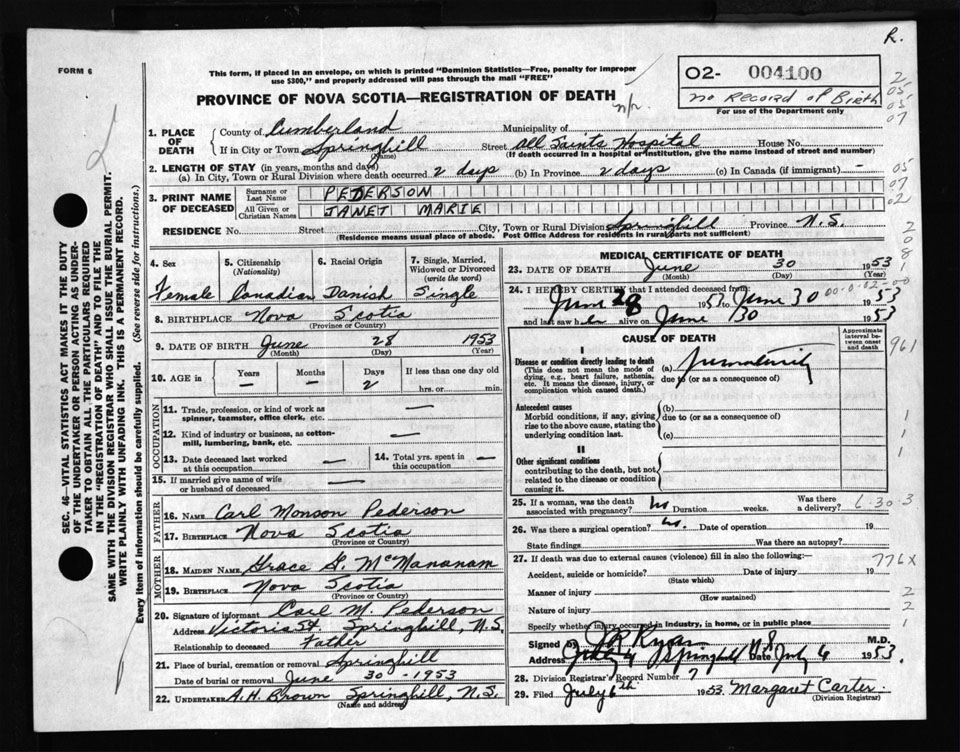 R.
FORM 6
This form, if placed in an envelope, on which is printed "Dominion Statistics—Free, penalty for improper
use $300," and properly addressed will pass through the mail "FREE"
O2- 004100
no Record of Birth
For use of the Department only
PROVINCE OF NOVA SCOTIA—REGISTRATION OF DEATH
n/r.
2
05
05
07
SEC. 46—VITAL STATISTICS ACT MAKES IT THE DUTY
OF THE UNDERTAKER OR PERSON ACTING AS UNDER-
TAKER TO OBTAIN ALL THE PARTICULARS REQUIRED
IN THE "REGISTRATION OF DEATH" AND TO FILE THE
SAME WITH THE DIVISION REGISTRAR WHO SHALL ISSUE THE BURIAL PERMIT.
WRITE PLAINLY WITH UNFADING INK. THIS IS A PERMANENT RECORD.
Every item of Information should be carefully supplied. (See reverse side for instructions.)
1. PLACE OF DEATH
County of Cumberland Municipality of
If in City or Town Springhill Street All Saints Hospital House No.
(Name) (If death occurred in a hospital or institution, give the name instead of street and number)
2. LENGTH OF STAY (in years, months and days)
(a) In City, Town or Rural Division where death occurred 2 days (b) In Province 2 days (c) In Canada (if immigrant) -
05
07
02
3. PRINT NAME OF DECEASED
Surname or Last Name PEDERSON
All Given or Christian Names JANET MARIE
RESIDENCE No. Street City, Town or Rural Division Springhill Province N.S.
(Residence means usual place of abode. Post Office Address for residents in rural parts not sufficient)
4. Sex Female
5. Citizenship (Nationality) Canadian
6. Racial Origin Danish
7. Single, Married, Widowed or Divorced (write the word) Single
8. BIRTHPLACE Nova Scotia
(Province or Country)
9. DATE OF BIRTH June 28 1953
(Month) (Day) (Year)
10. AGE in Years — Months — Days 2 If less than one day old
hrs. or min.
OCCUPATION
11. Trade, profession, or kind of work as
spinner, teamster, office clerk, etc. —
12. Kind of industry or business, as cotton-
mill, lumbering, bank, etc. —
13. Date deceased last worked
at this occupation —
14. Total yrs. spent in
this occupation —
15. If married give name of wife
or husband of deceased —
FATHER
16. NAME Carl Monson Pederson
17. BIRTHPLACE Nova Scotia
(Province or Country)
MOTHER
18. MAIDEN NAME Grace G. McMananam
19. BIRTHPLACE Nova Scotia
(Province or Country)
20. Signature of informant Carl M. Pederson
Address Victoria St. Springhill, N.S.
Relationship to deceased Father
21. Place of burial, cremation or removal Springhill
Date of burial or removal June 30 - 1953
22. UNDERTAKER A.H. Brown Springhill, N.S.
(Name and address)
MEDICAL CERTIFICATE OF DEATH
23. DATE OF DEATH June 30 1953
(Month) (Day) (Year)
24. I HEREBY CERTIFY that I attended deceased from:
June 28 1953 to June 30 1953
and last saw her alive on June 30 1953
CAUSE OF DEATH
Approximate interval between onset and death
I
Disease or condition directly leading to death
(This does not mean the mode of
dying, e.g., heart failure, asthenia,
etc. It means the disease, injury, or
complication which caused death.)
(a) Prematurity
due to (or as a consequence of)
Antecedent causes
Morbid conditions, if any, giving
rise to the above cause, stating the
underlying condition last.
(b)
due to (or as a consequence of)
(c)
II
Other significant conditions
contributing to the death, but not
related to the disease or condition
causing it.
961
25. If a woman, was the death
associated with pregnancy? No Duration weeks. Was there
a delivery? 6-30-3
26. Was there a surgical operation? No. Date of operation 19
State findings Was there an autopsy?
27. If death was due to external causes (violence) fill in also the following:
776X
Accident, suicide or homicide? Date of injury 19
(State which)
Manner of injury
(How sustained)
Nature of injury
Specify whether injury occurred in industry, in home, or in public place
Signed by J R Ryan M.D.
Address Springhill N.S Date July 6 1953.
28. Division Registrar's Record Number 7
29. Filed July 6th 1953 Margaret Carter.
(Division Registrar)